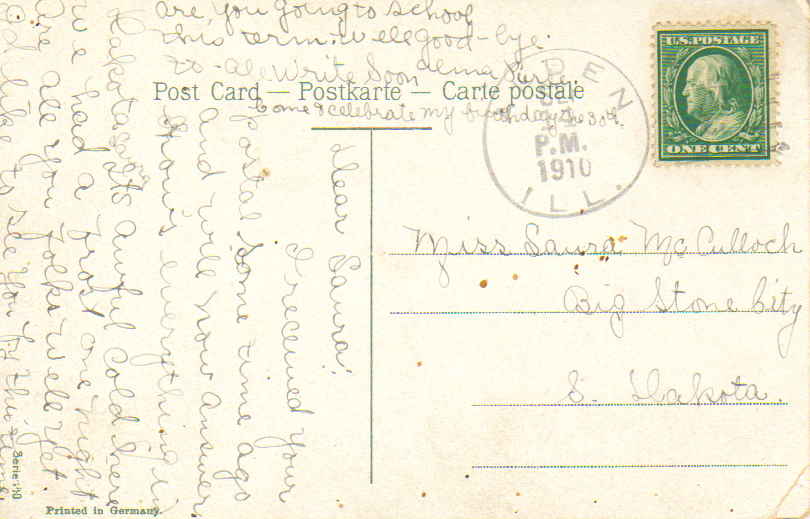 are, you going to school
this term. well good-bye.
to-all Write Soon Alma
Post Card — Postkarte — Carte postale
Come & celebrate my birthday the 30th.
U.S. POSTAGE
ONE CENT
DEN
P.M.
1910
ILL.
Dear Laura!
I received your
Postal some time ago
and will now answer
How is everything in
Dakota its awful cold here
we had a frost one night
are all you folks well yet
I'd like to see you by this time
Miss Laura McCulloch
Big Stone City
S. Dakota.
Serie:
Printed in Germany.